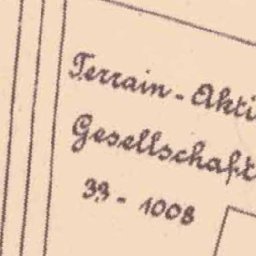 Terrain-Akti
Gesellschaft
33 - 1008